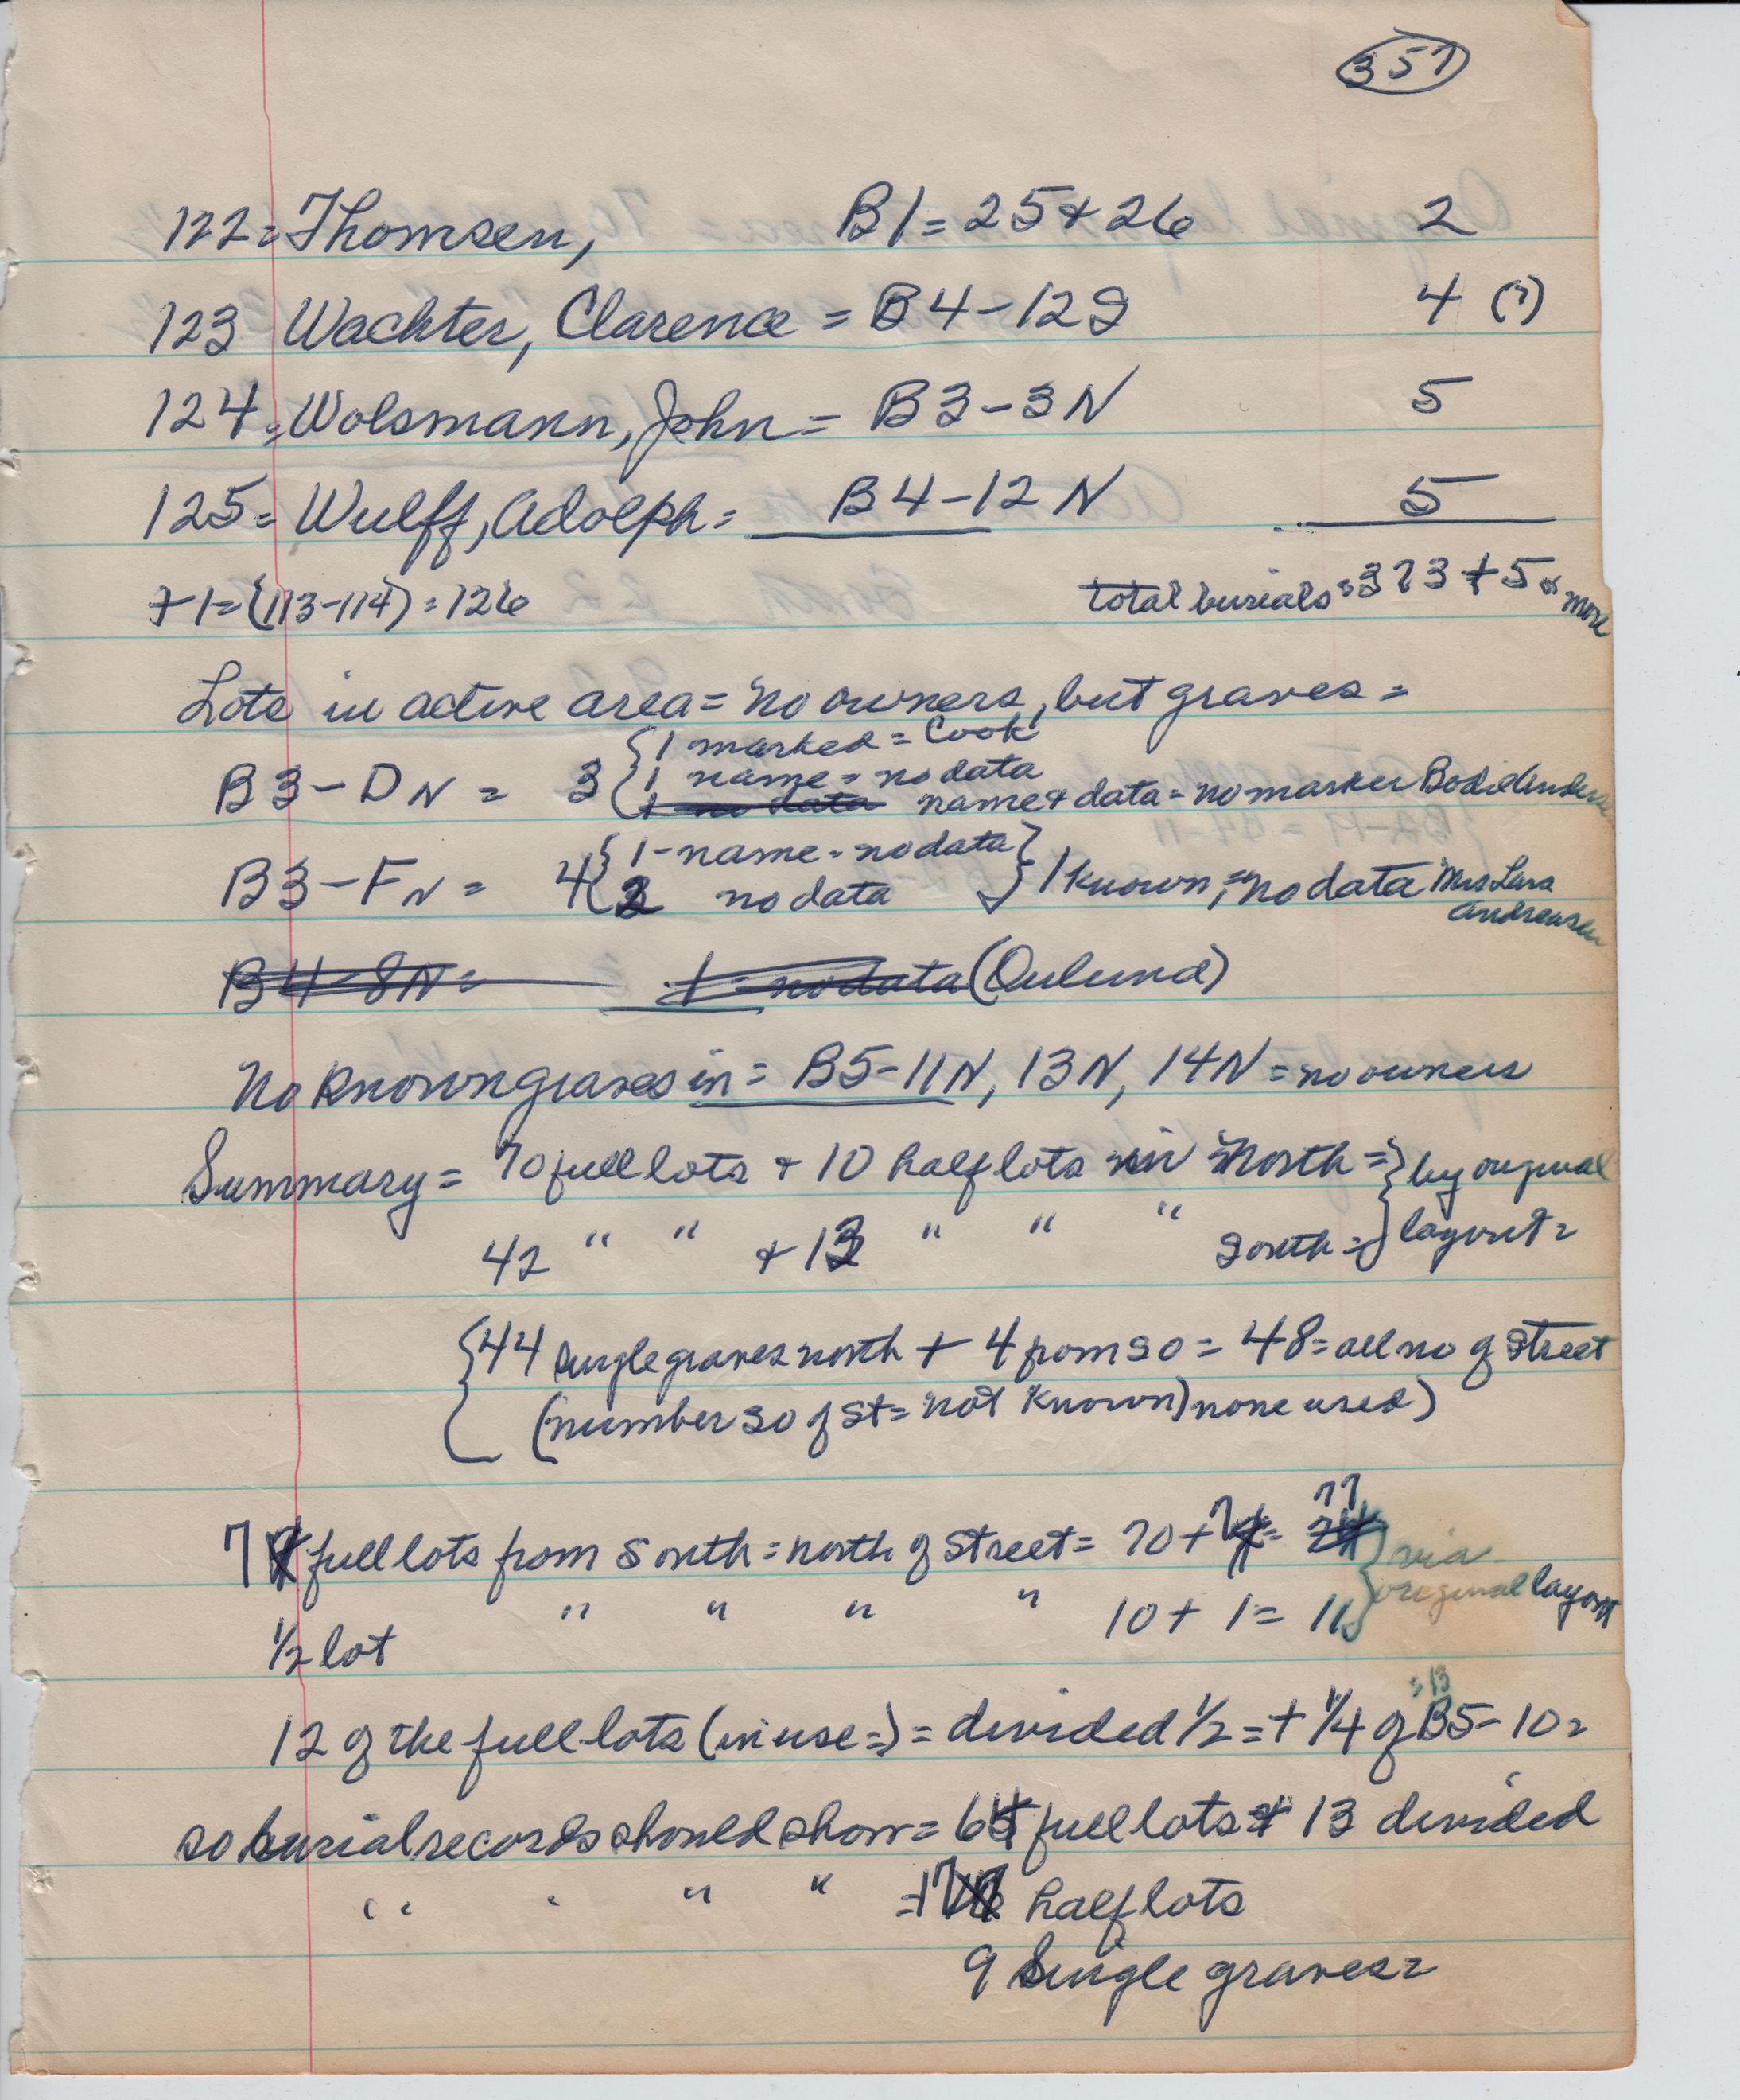 357
122= Thomsen, B1= 25 & 26 2
123 Wachter, Clarence = B4-12S 4 (?)
124= Wolsmann, John = B3-3N 5
125= Wulff, Adolph= B4-12N 5
+1=(113-114)=126 total burials=373+5 or more
Lots in active area= no owners, but graves=
1 marked = Cook
B3-DN = 3 { 1 name = no data
1 no data name & data= no marker Bodil Andersen
B3-FN = 4 { 1-name=no data
2 no data } 1 known,= no data Mrs Lars Andreasen
B4-8N= 1=no data (Oulund)
No known graves in= B5-11N, 13N, 14N= no owners
Summary= 70 full lots & 10 half lots in North = } by original
42 " " & 13 " " " South = } layout=
{ 44 single graves north + 4 from so = 48= all no of street
(number so of st= not known) none used)
7 full lots from South= north of street= 70+7= 77 } via
1/2 lot " " " " 10+ 1= 11 } original layout
=13
12 of the full lots (in use=)= divided 1/2=+ 1/4 of B5-10=
so burial records should show= 64 full lots & 13 divided
" " " " = 17 half lots
9 Single graves=